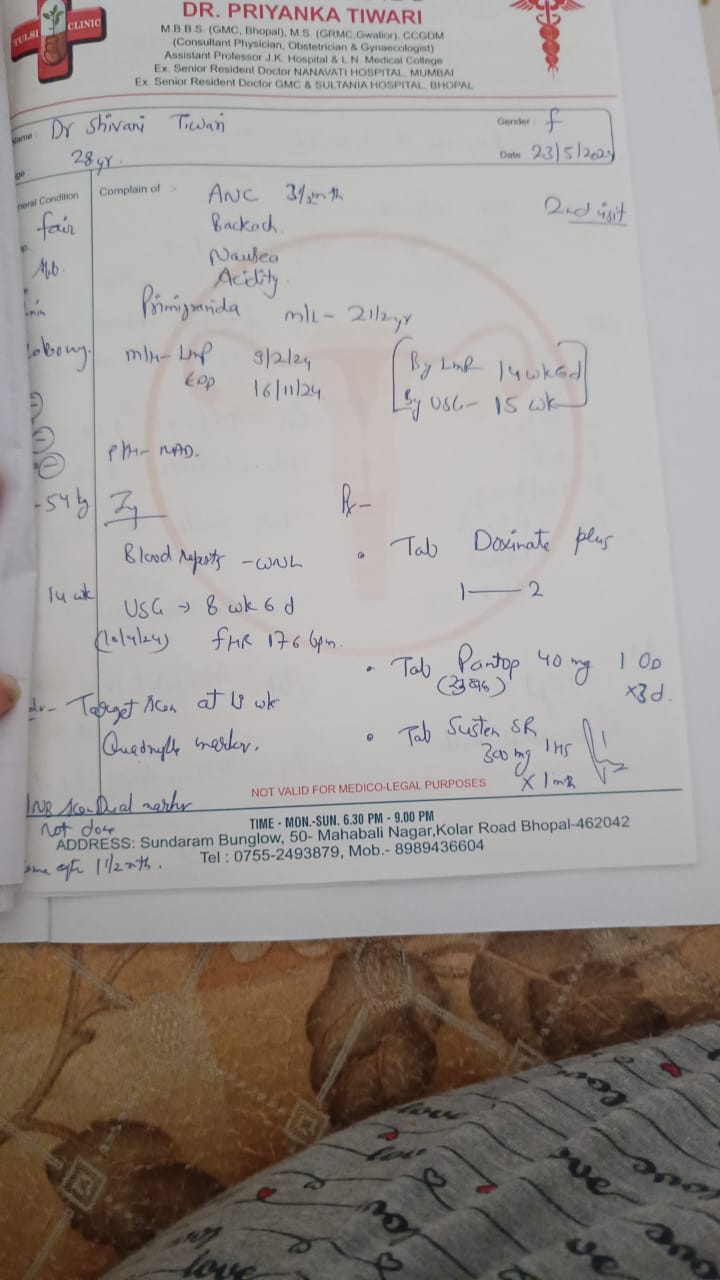 TULSI CLINIC
DR. PRIYANKA TIWARI
M.B.B.S. (GMC, Bhopal), M.S. (GRMC, Gwalior), CCGDM
(Consultant Physician, Obstetrician & Gynaecologist)
Assistant Professor J.K. Hospital & L.N. Medical College
Ex. Senior Resident Doctor NANAVATI HOSPITAL, MUMBAI
Ex. Senior Resident Doctor GMC & SULTANIA HOSPITAL, BHOPAL
Name : Dr Shivani Tiwari Gender : f
28yr. Date 23/5/2024
neral Condition Complain of :- ANC 3 1/2 mth 2nd visit
fair Backach.
Nausea
Acidity.
Primigravida m/L - 2 1/2 yr
m/h - LMP 3/2/24 By LMP 14 wk 6d
EDD 16/11/24 By USG - 15 wk
P/H - NAD.
- 54 kg Rx -
Blood reports - WNL • Tab Doxinate plus
1 — 2
14 wk USG → 8 wk 6 d
(10/4/24) fHR 176 bpm. • Tab Pantop 40 mg 1 OD
x3d.
Target scan at 18 wk • Tab Susten SR
Quadruple marker. 300 mg 1HS
x 1 mth
NOT VALID FOR MEDICO-LEGAL PURPOSES
scan Dual marker
not done
1 1/2 mth.
TIME - MON.-SUN. 6.30 PM - 9.00 PM
ADDRESS: Sundaram Bunglow, 50- Mahabali Nagar,Kolar Road Bhopal-462042
Tel : 0755-2493879, Mob.- 8989436604